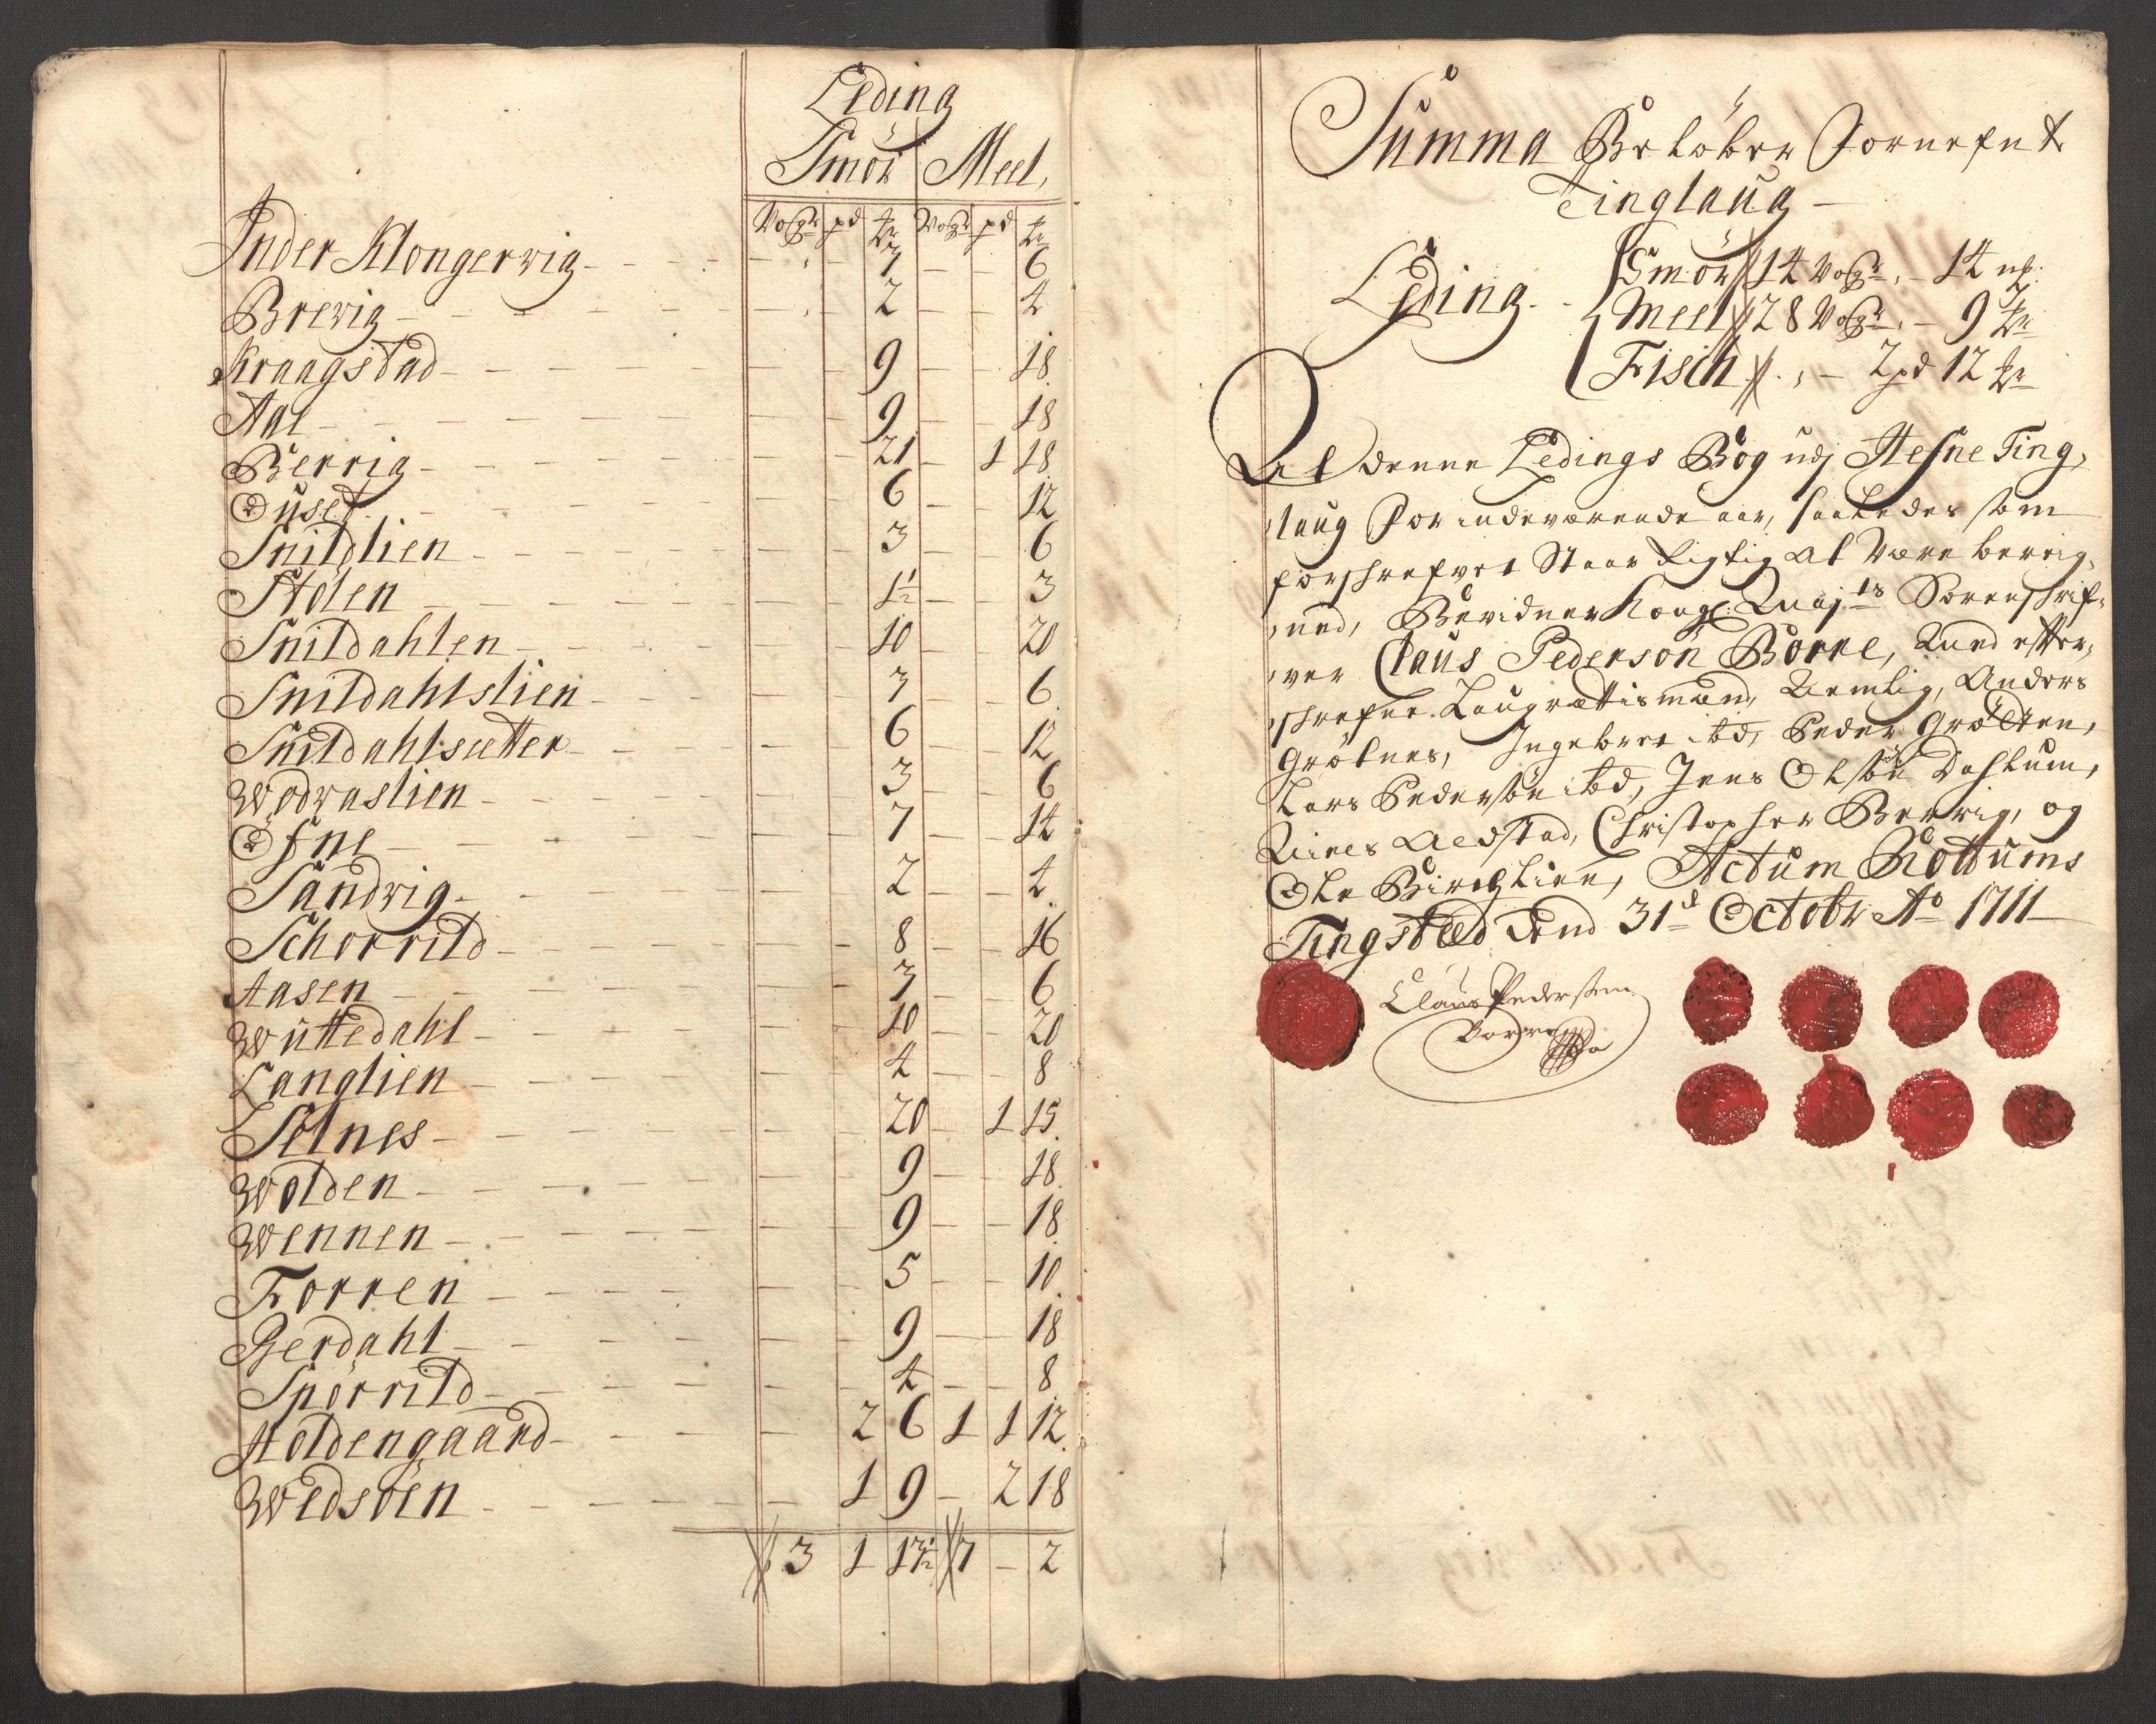 Leding
Smör Meel,
Woger pd ℔ Woger pd ℔
Inder Klongervig - - - 3 - - 6
Brevig - - - 2 - - 4
Kraagstad - - - 9 - - 18
Aal - - - 9 - - 18
Bervig - - - 21 - 1 18
Duset - - - 6 - - 12
Snildlien - - - 3 - - 6
Stölen - - - 1½ - - 3
Snildahlen - - - 10 - - 20
Snildahlslien - - - 3 - - 6
Snildahlsætter - - - 6 - - 12
Wodvaslien - - - 3 - - 6
Øfne - - - 7 - - 14
Sandvig - - - 2 - - 4
Schorrild - - - 8 - - 16
Aasen - - - 3 - - 6
Wuttedahl - - - 10 - - 20
Langlien - - - 4 - - 8
Solnes - - - 20 - 1 15
Wolden - - - 9 - - 18
Wennen - - - 9 - - 18
Forren - - - 5 - - 10
Gerdahl - - - 9 - - 18
Snörrild - - - 4 - - 8
Holdengaard - - 2 6 1 1 12
Wedsöen - - 1 9 - 2 18
3 1 17½ 7 - 2
Summa Belöber Fornefnt
Tinglaug -
Leding - Smör 14 Woger, - 14 ℔
Meel 28 Woger, - 9 ℔
Fisch , - 2 pd 12 ℔
At denne Ledings Bog udj Hefne Ting,
laug For indeværende aar, saaledes som
forschrefvet Staar Rigtig at Være bereig,
ned, Bevidner Kongl: Maj:ts Sorenschrif,
ver Claus Pedersön Borre, Med efter,
schrefne Laugrættismænd, Nemlig, Anders
Grötnes, Ingebret ibd, Peder Grötten,
Lars Pedersön ibd, Jens Olsön Dahlum,
Christopher Bervig, og
Ole Lien, Actum Kottums
Tingsted Dend 31d Octobr Ao 1711
Claus Pedersøn
Borre